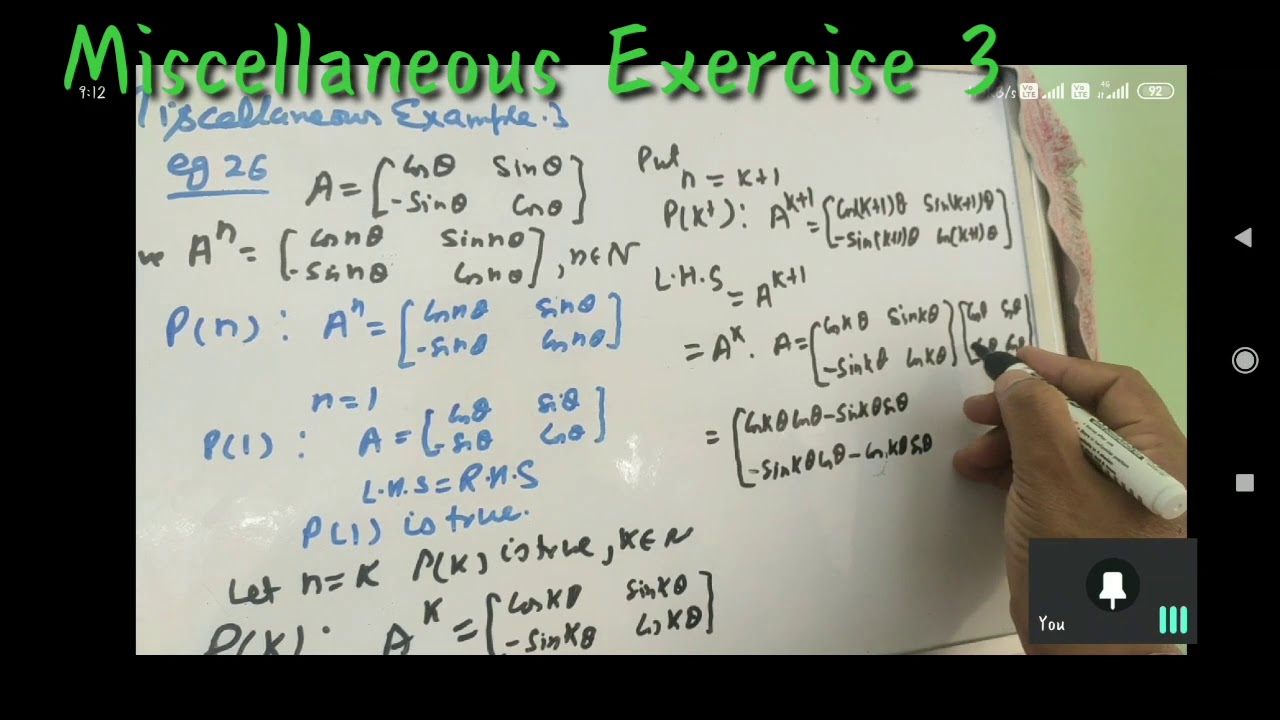 Miscellaneous Exercise 3
9:12
B/s Vo LTE Vo LTE 4G 92
iscellaneous Example.3
eg 26
A = [cosθ sinθ
-sinθ cosθ]
ve Aⁿ = [cosnθ sinnθ
-sinnθ cosnθ], n∈N
P(n) : Aⁿ = [cosnθ sinθ
-sinθ cosnθ]
n=1
P(1) : A = [cosθ siθ
-sinθ cosθ]
L.H.S = R.H.S
P(1) is true.
Let n=K P(K) is true, K∈N
P(K) : Aᴷ = [cosKθ sinKθ
-sinKθ cosKθ]
Put
n = K+1
P(K+) : Aᴷ⁺¹ = [cos(K+1)θ sin(K+1)θ
-sin(K+1)θ cos(K+1)θ]
L.H.S
= Aᴷ⁺¹
= Aᴷ. A = [cosKθ sinKθ
-sinKθ cosKθ] [cosθ sinθ
sinθ cosθ]
= [cosKθ cosθ - sinKθ sinθ
-sinKθ cosθ - cosKθ sinθ
You